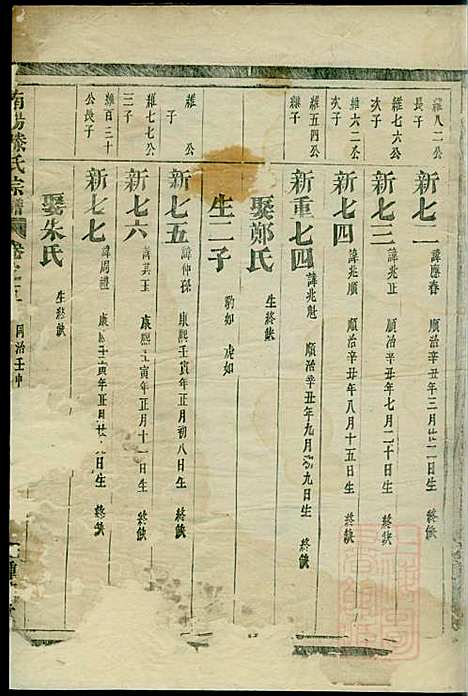 維八二公
長子
新七二 諱應春 順治辛丑年三月廿二日生 終缺
維七六公
次子
新七三 諱兆正 順治辛丑年七月二十日生 終缺
維六二公
次子
新七四 諱兆順 順治辛丑年八月十五日生 終缺
維五四公
子
新重七四 諱兆魁 順治辛丑年九月初九日生 終缺
娶鄭氏 生終缺
生二子
維七七公
子
新七五 諱仲孫 康熙壬寅年正月初八日生 終缺
三子
新七六 諱其玉 康熙壬寅年正月十二日生 終缺
維百三十
公長子
新七七 諱周禮 康熙壬寅年正月廿 日生 終缺
娶朱氏 生終缺
南陽滕氏宗譜 卷之五 同治壬申